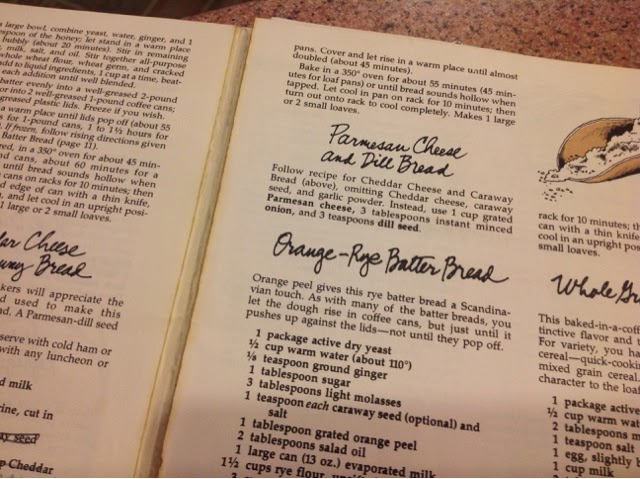 a large bowl, combine yeast, water, ginger, and 1
espoon of the honey; let stand in a warm place
bubbly (about 20 minutes). Stir in remaining
, milk, salt, and oil. Stir together all-purpose
whole wheat flour, wheat germ, and cracked
add to liquid ingredients, 1 cup at a time, beat-
each addition until well blended.
batter evenly into a well-greased 2-pound
or into 2 well-greased 1-pound coffee cans;
greased plastic lids. Freeze if you wish.
a warm place until lids pop off (about 55
for 1-pound cans, 1 to 1½ hours for
If frozen, follow rising directions given
Batter Bread (page 11).
red, in a 350° oven for about 45 min-
nd cans, about 60 minutes for a
until bread sounds hollow when
cans on racks for 10 minutes; then
d edge of can with a thin knife,
, and let cool in an upright posi-
1 large or 2 small loaves.
dar Cheese
way Bread
kers will appreciate the
d used to make this
d. A Parmesan-dill seed
serve with cold ham or
with any luncheon or
d milk
rine, cut in
ay seed
p Cheddar
pans. Cover and let rise in a warm place until almost
doubled (about 45 minutes).
Bake in a 350° oven for about 55 minutes (45 min-
utes for loaf pans) or until bread sounds hollow when
tapped. Let cool in pan on rack for 10 minutes; then
turn out onto rack to cool completely. Makes 1 large
or 2 small loaves.
Parmesan Cheese
and Dill Bread
Follow recipe for Cheddar Cheese and Caraway
Bread (above), omitting Cheddar cheese, caraway
seed, and garlic powder. Instead, use 1 cup grated
Parmesan cheese, 3 tablespoons instant minced
onion, and 3 teaspoons dill seed.
Orange-Rye Batter Bread
Orange peel gives this rye batter bread a Scandina-
vian touch. As with many of the batter breads, you
let the dough rise in coffee cans, but just until it
pushes up against the lids—not until they pop off.
1 package active dry yeast
½ cup warm water (about 110°)
⅛ teaspoon ground ginger
1 tablespoon sugar
3 tablespoons light molasses
1 teaspoon each caraway seed (optional) and
salt
1 tablespoon grated orange peel
2 tablespoons salad oil
1 large can (13 oz.) evaporated milk
1½ cups rye flour,
rack for 10 minutes; th
can with a thin knife
cool in an upright pos
small loaves.
Whole Gr
This baked-in-a-co
tinctive flavor and t
For variety, you ha
cereal—quick-cookin
mixed grain cereal
character to the loaf
1 package activ
½ cup warm wat
2 tablespoons m
1 teaspoon salt
1 egg, slightly b
1 cup milk